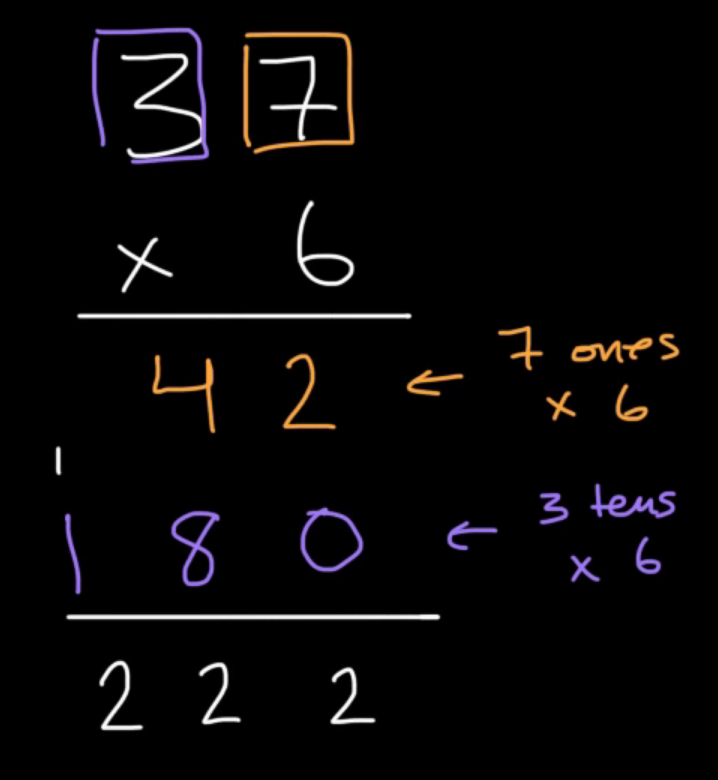 3 7
x 6
4 2 ← 7 ones
x 6
1
1 8 0 ← 3 tens
x 6
2 2 2